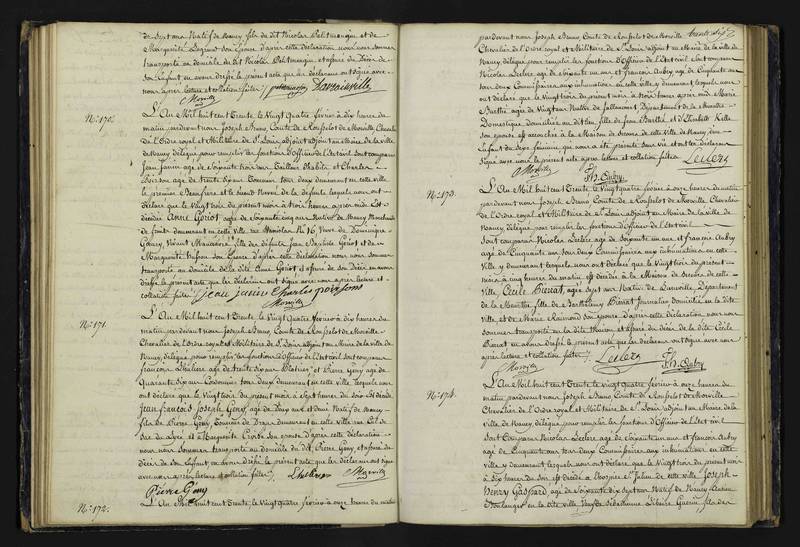 de Sept ans Natif de Nancy fils du dit Nicolas Petitmangin et de
Marguerite son Epouse d'après cette déclaration nous nous sommes
transporté au domicile du dit Nicolas Petitmangin et assuré du Décès de
son Enfant en avons dressé le présent acte que les déclarans ont signé avec
nous après lecture et collation faites
Nº 170.
L'An Mil huit cent Trente, le Vingt Quatre février à dix heures du
matin pardevant nous Joseph Bruno, Comte de Rousselot de Morville, Chevalier
de l'Ordre royal et Militaire de St Louis adjoint au Maire de la ville
de Nancy, délégué pour remplir les fonctions d'Officier de l'Etat civil sont comparus
Jean Janin agé de soixante trois ans Tailleur d'habits et Charles
Poirson agé de trente six ans tous deux demeurant en cette ville
le premier Beau frère et le second Neveu de la défunte lesquels nous ont
déclaré que le Vingt trois du présent mois à trois heures après midi Est
décédée Anne Goriot agée de Soixante cinq ans Native de Nancy Marchande
de fruits demeurant en cette ville rue Stanislas Nº 16, Veuve de Dominique
vivant fille des défunts Jean Baptiste Goriot et de
Marguerite son Epouse d'après cette déclaration nous nous sommes
transporté au domicile de la dite Anne Goriot et assuré de son Décès en avons
dressé le présent acte que les déclarans ont signé avec nous après lecture et
collation faites Jean janin Charles poirson
Morville
Nº 171.
L'An Mil huit cent Trente, le Vingt Quatre février à dix heures du
matin pardevant nous Joseph Bruno, Comte de Rousselot de Morville
Chevalier de l'Ordre royal et Militaire de St Louis adjoint au Maire de la ville de
Nancy, délégué pour remplir les fonctions d'Officier de l'Etat civil sont comparus
françois agé de trente six ans et Pierre Gény agé de
Quarante six ans Cordonnier tous deux demeurant en cette ville, lesquels nous
ont déclaré que le Vingt trois du présent mois à sept heures du soir Est décédé
Jean françois Joseph Gény, agé de Deux ans et demi Natif de Nancy
fils de Pierre Gény demeurant en cette ville rue
et de Marguerite son épouse d'après cette déclaration
nous nous sommes transporté au domicile du dit Pierre Gény, et assuré du
décès de son Enfant en avons dressé le présent acte que les déclarans ont signé
avec nous après lecture et collation faites Morville
Pierre Gény
Nº 172.
L'An Mil huit cent Trente, le Vingt Quatre février à onze heures du matin
pardevant nous Joseph Bruno, Comte de Rousselot de Morville
Chevalier de l'Ordre royal et Militaire de St Louis adjoint au Maire de la ville de
Nancy, délégué pour remplir les fonctions d'Officier de l'Etat civil sont comparus
Nicolas Leclerc agé de soixante un ans et françois Aubry agé de Cinquante un
ans tous deux Commissaires aux inhumations en cette ville y demeurant lesquels nous
ont déclaré que le Vingt trois du présent mois à trois heures après midi Marie
Barthe agée de Vingt un ans Native de Département de la Meurthe
Domestique domiciliée au dit lieu fille de Jean Barthe et d'Elisabeth
son épouse est accouchée à la Maison de Secours de cette ville de Nancy d'un
Enfant du Sexe féminin qui nous a été présenté sans vie et ont les déclarans
Signé avec nous le présent acte après lecture et collation faites Leclerc
Morville fs. Aubry
Nº 173.
L'An Mil huit cent Trente le Vingt Quatre février à onze heures du matin
pardevant nous Joseph Bruno, Comte de Rousselot de Morville Chevalier
de l'Ordre royal et Militaire de St Louis adjoint au Maire de la ville de
Nancy, délégué pour remplir les fonctions d'Officier de l'Etat civil
Sont comparus Nicolas Leclerc agé de soixante un ans et françois Aubry
agé de Cinquante un ans tous deux Commissaires aux inhumations en cette
Ville y demeurant lesquels nous ont déclaré que le Vingt trois du présent
mois à cinq heures du matin est décédée à la Maison de Secours de cette
ville, Cécile Pierrat, agée de sept ans Native de Département
de la Meurthe, fille de Barthélemy Pierrat Journalier domicilié en la dite
ville et de Marie Raimond son épouse. d'après cette déclaration nous nous
sommes transporté en la dite Maison et assuré du décès de la dite Cécile
Pierrat en avons dressé le présent acte que les déclarans ont signé avec nous
après lecture et collation faites Leclerc fs. Aubry
Morville
Nº 174.
L'An Mil huit cent Trente le Vingt quatre février à onze heures du
matin pardevant nous Joseph Bruno Comte de Rousselot de Morville
Chevalier de l'Ordre royal et Militaire de St Louis adjoint au Maire de la
ville de Nancy, délégué pour remplir les fonctions d'Officier de l'Etat civil
Sont Comparus Nicolas Leclerc agé de Soixante un ans et françois Aubry
agé de Cinquante un ans tous deux Commissaires aux inhumations en cette
ville y demeurant lesquels nous ont déclaré que le Vingt trois du présent mois
à dix heures du soir est décédé à l'hospice St Julien de cette ville Joseph
Henry Gaspard, agé de Soixante dix sept ans Natif de Nancy Ancien
Boulanger en la dite ville, Veuf de Sébastienne Libaire Guérin fils des